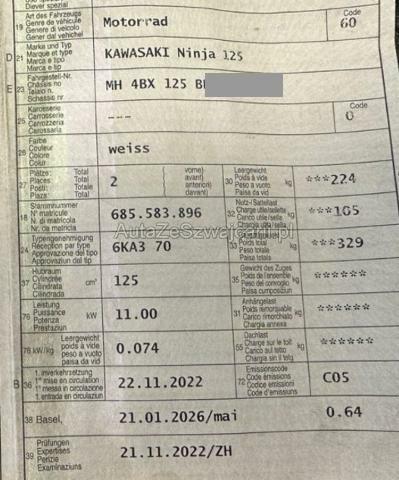 Divers spezial
19 Art des Fahrzeugs
Genre de véhicule
Genere di veicolo
Gener dal vehichel
Motorrad
Code
60
D 21 Marke und Typ
Marque et type
Marca e tipo
Marca e tip
KAWASAKI Ninja 125
E 23 Fahrgestell-Nr.
Châssis no
Telaio n.
Schassis nr
MH 4BX 125
25 Karosserie
Carrosserie
Carrozzeria
Carossaria
---
Code
0
26 Farbe
Couleur
Colore
Colur
weiss
27 Plätze: Total
Places: Total
Posti: Totale
Plazs: Total
2
vorne)
avant)
anteriori)
davant)
30 Leergewicht
Poids à vide
Peso a vuoto
Paisa da vid
kg
***224
18 Stammnummer
N° matricule
N. di matricola
Nr. da matricla
685.583.896
32 Nutz-/Sattellast
Charge utile/sellette
kg
***105
24 Typengenehmigung
Réception par type
Approvazione del tipo
Approvaziun dal tip
6KA3 70
33
Poids total
Peso totale
Paisa totala
kg
***329
37 Hubraum
Cylindrée
Cilindrata
Cilindrada
cm³
125
35 Gewicht des Zuges
Poids de l'ensemble
Peso del convoglio
Paisa cumposiziun
kg
******
76 Leistung
Puissance
Potenza
Prestaziun
kW
11.00
31 Anhängelast
Poids remorquable
Carico rimorchiato
Chargia annexa
kg
******
78 kW/kg
Leergewicht
poids à vide
peso a vuoto
paisa da vid
0.074
55 Dachlast
Charge sur le toit
Carico sul tetto
Chargia sin il tetg
kg
******
B 36 1. Inverkehrsetzung
1re mise en circulation
1a messa in circolazione
1. entrada en circulaziun
22.11.2022
72 Emissionscode
Code émissions
Codice emissioni
Code d'emissiuns
C05
38 Basel,
21.01.2026/mai
0.64
39 Prüfungen
Expertises
Perizie
Examinaziuns
21.11.2022/ZH
AutaZeSzwajcarii.pl